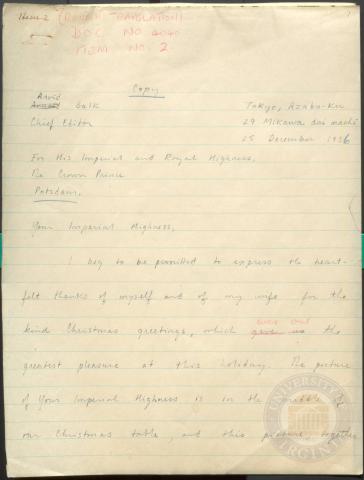 Item 2 (ROUGH TRANSLATION)
DOC NO 4040
ITEM NO. 2.
Copy
Arvid
Balk Tokyo, Azabu-Ku
Chief Editor 29 Mikawa dai machi
25 December 1936
For His Imperial and Royal Highness,
The Crown Prince
Potsdam.
Your Imperial Highness,
I beg to be permitted to express the heart-
felt thanks of myself and of my wife for the
kind Christmas greetings, which gave us the
greatest pleasure at this holiday. The picture
of Your Imperial Highness is in the middle of
our Christmas table, and this picture, together
UNIVERSITY
VIRGINIA